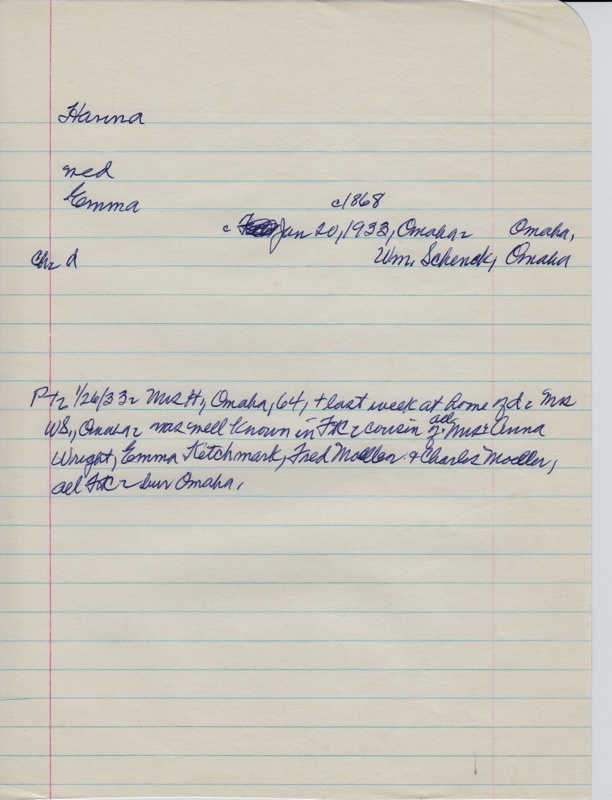 Hanna
med
Emma c1868
c Jan 20, 1933, Omaha Omaha,
Ch: d Wm. Schenck, Omaha
Pt 1/26/33: Mrs H, Omaha, 64, + last week at home of d: Mrs
WS, Omaha: was well known in FtC: cousin of: Mrs Anna
Wright, Emma Ketchmark, Fred Moeller & Charles Moeller,
all FtC: bur Omaha.